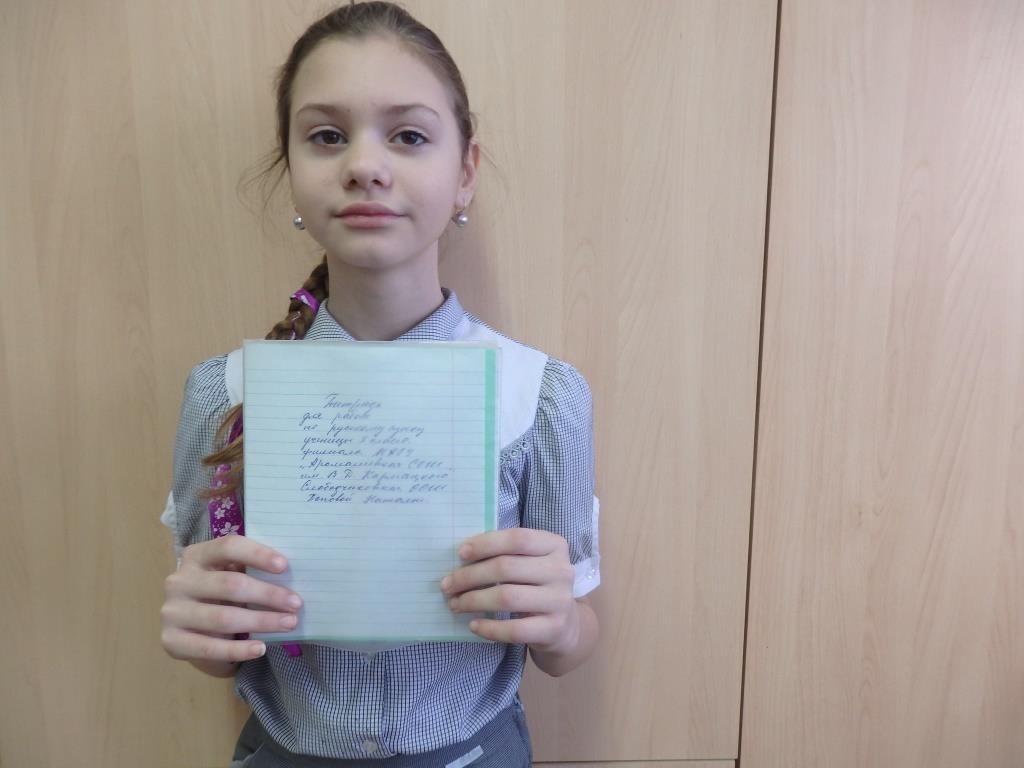 Тетрадь
для работ
по русскому языку
ученицы класса
филиала МАОУ
"Аромашевская СОШ
им. В. Д. Кармацкого"
Слободчиковская ООШ
Поповой Натальи.